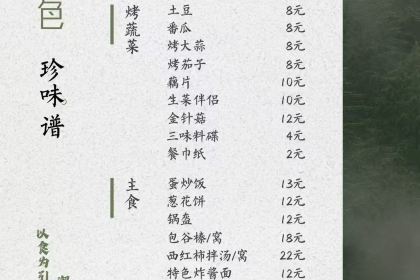 色
珍味谱
烤蔬菜
土豆 8元
番瓜 8元
烤大蒜 8元
烤茄子 8元
藕片 10元
生菜伴侣 10元
金针菇 12元
三味料碟 4元
餐巾纸 2元
主食
蛋炒饭 13元
葱花饼 12元
锅盔 12元
包谷榛/窝 18元
西红柿拌汤/窝 22元
特色炸酱面 12元
以食为引